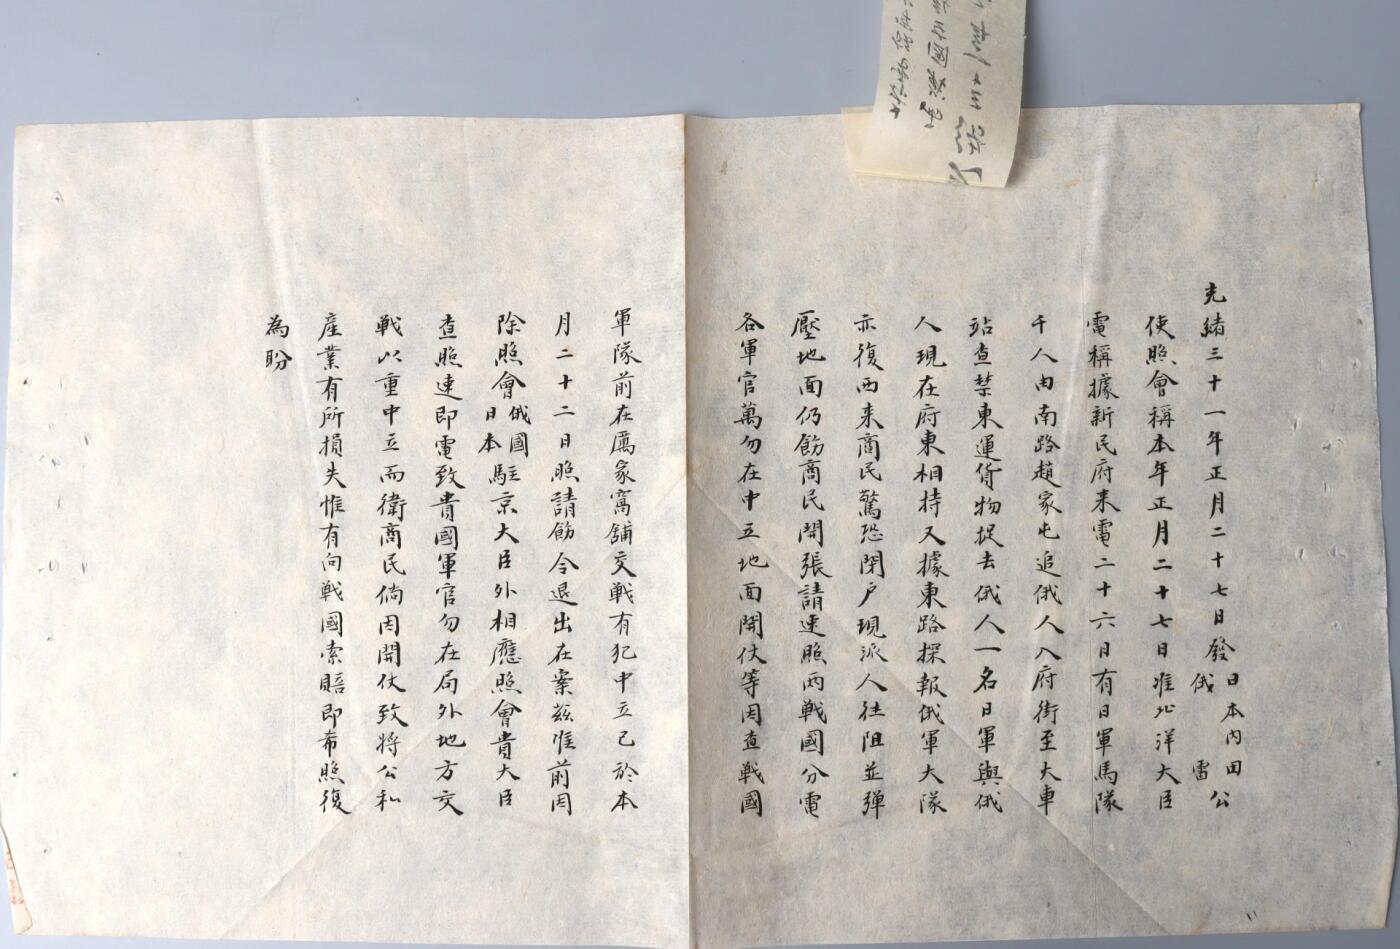 光緒三十一年正月二十七日發日本內田俄雷公
使照會稱本年正月二十七日准北洋大臣
電稱據新民府来電二十六日有日軍馬隊
千人由南路趙家屯追俄人入府街至大車
站查禁東運貨物捉去俄人一名日軍與俄
人現在府東相持又據東路探報俄軍大隊
亦復西来商民驚恐閉户現派人往阻並彈
壓地面仍飭商民開張請速照兩戰國分電
各軍官萬勿在中立地面開仗等因查戰國
軍隊前在厲家窩舖交戰有犯中立已於本
月二十二日照請飭令退出在案茲准前因
除照會俄國日本駐京大臣外相應照會貴大臣
查照速即電致貴國軍官勿在局外地方交
戰以重中立而衛商民倘因開仗致將公私
產業有所損失惟有向戰國索賠即希照復
為盼